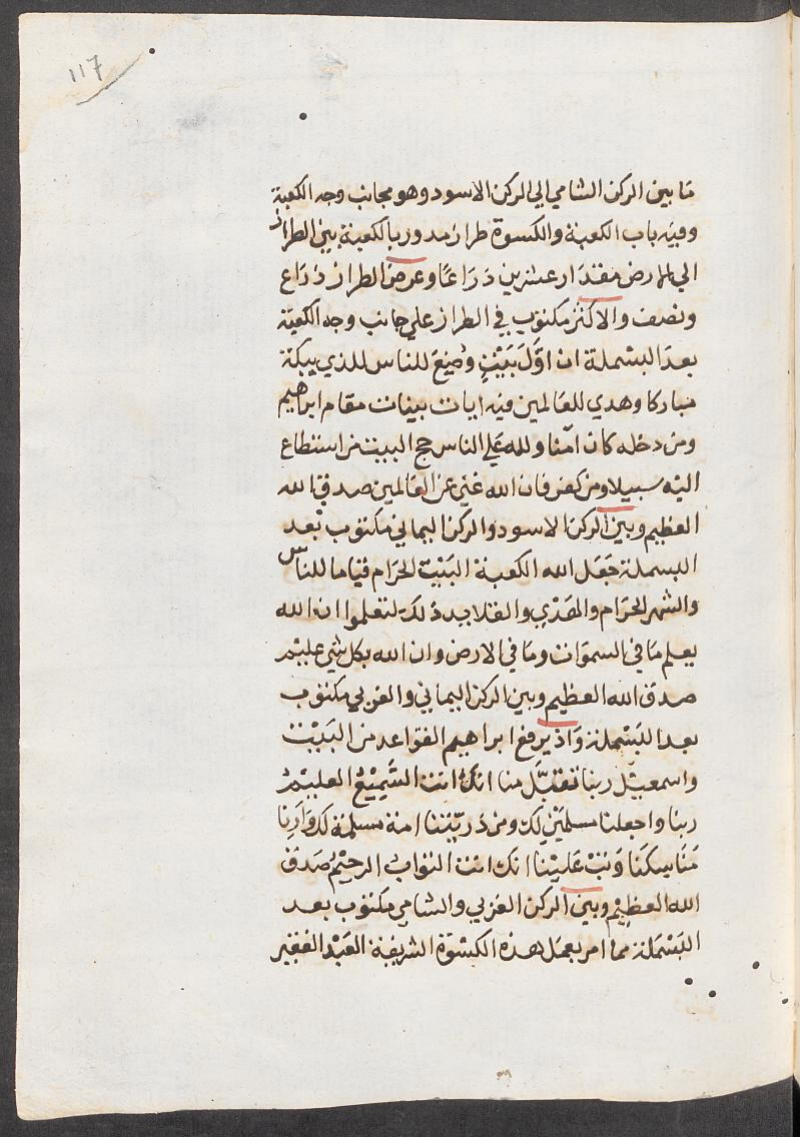 117
ما بين الركن الشامي الي الركن الاسود وهو مجانب وجه الكعبة
وفيه باب الكعبة والكسوة طراز مدور بالكعبة بين الطراز
الي الارض مقدار عشرين ذراعًا وعرض الطراز ذراع
ونصف والاكثر مكتوب في الطراز علي جانب وجه الكعبة
بعد البسملة ان اوَّلَ بَيْتٍ وُضِعَ للناس للذي ببكة
مباركا وهدي للعالمين فيه ايات بينات مقام ابراهيم
ومن دخله كان امنا ولله علي الناس حج البيت من استطاع
اليه سبيلا ومن كفر فان الله غني عن العالمين صدق الله
العظيم وبين الركن الاسود والركن اليماني مكتوب بعد
البسملة جَعَل الله الكعبة البَيْت الحرَام قياما للناس
والشهر الحرَام والهَدْي والقلايد ذلك لتعلموا ان الله
يعلم مَا في السموَات ومَا في الارض وان الله بكل شي عليم
صدق الله العظيم وبين الركن اليماني والغربي مكتوب
بعد البَسْملة وَاذ يرفع ابراهيم القواعد من البَيْت
واسمعيل ربنا تقبَّل منا انكَ انت السَّمِيْعُ العليمُ
ربنا واجعلنا مسلمَيْن لك ومن ذريّتنا امة مسلمة لك وَاَرِنا
مَنَاسِكَنا وَتبْ عَليْنا انك انت التوابُ الرحيْمُ صَدَق
الله العظِيْم وبين الركن الغربي والشامي مكتوب بعد
البَسْملة مما امر بعمل هذه الكسْوَة الشريفة العَبْد الفقير